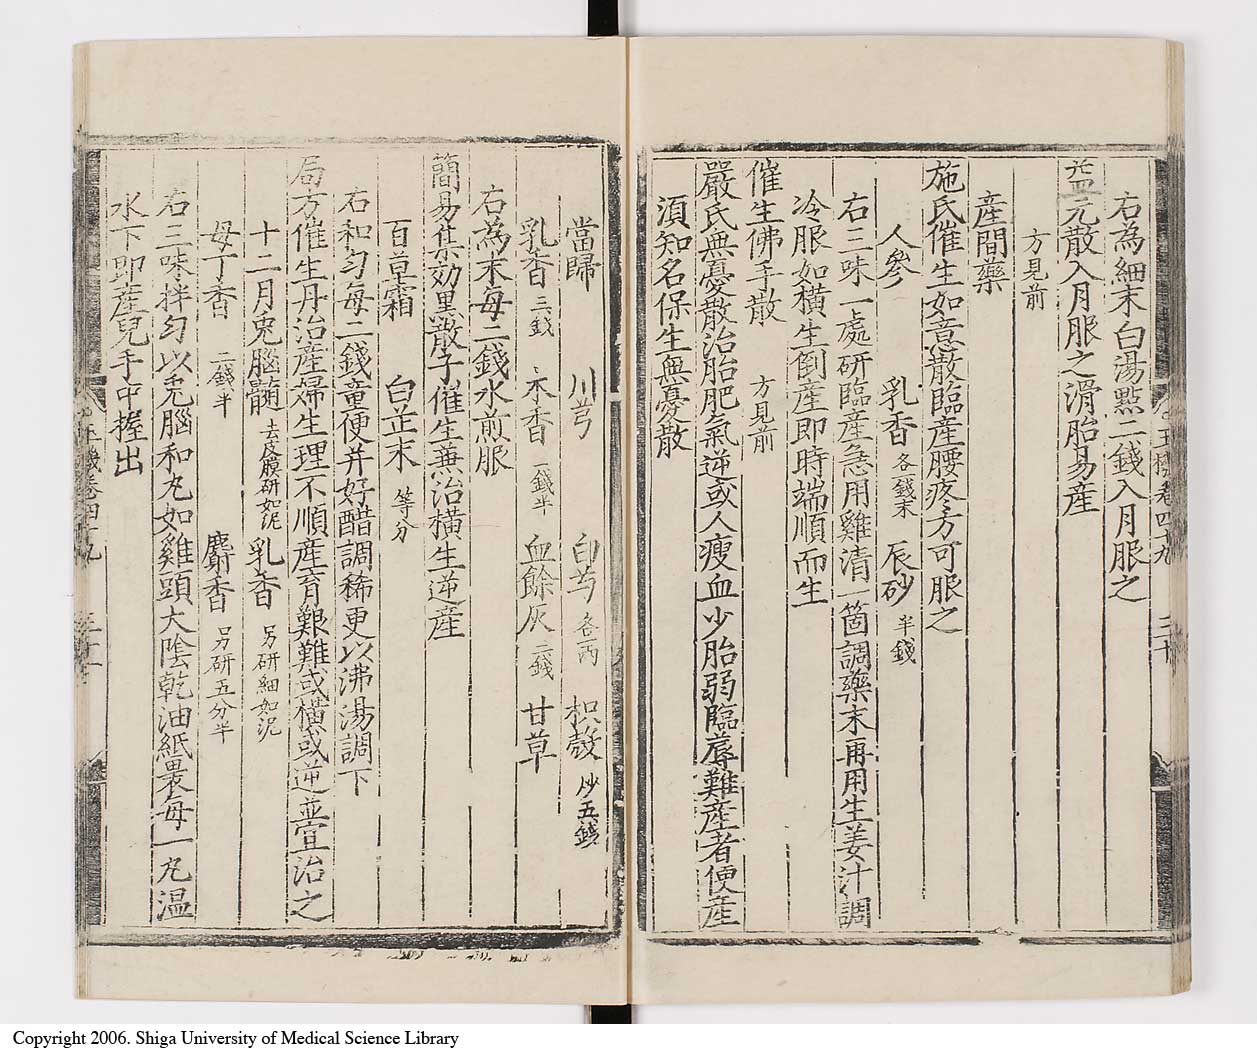 右為細末白湯㸃二錢入月服之
益元散入月服之滑胎易産
方見前
産間藥
施氏催生如意散臨産腰疼方可服之
人參 乳香各一錢末 辰砂半錢
右三味一處研臨産急用雞清一箇調藥末再用生姜汁調
冷服如横生倒産即時端順而生
催生佛手散 方見前
嚴氏無憂散治胎肥氣逆或人瘦血少胎弱臨蓐難産者便産
須知名保生無憂散
當歸 川芎 白芍各一兩 枳殼炒五錢
乳香三錢 木香一錢半 血餘灰二錢 甘草
右為末每二錢水煎服
簡易集効黒散子催生兼治横生逆産
百草霜 白芷末等分
右和匀每二錢童便并好醋調稀更以沸湯調下
局方催生丹治産婦生理不順産育艱難或横或逆並宜治之
十二月兎腦髓去皮膜研如泥 乳香另研細如泥
母丁香一錢半 麝香另研五分半
右三味拌匀以兎腦和丸如雞頭大隂乾油紙裹每一丸温
水下即産兒手中握出